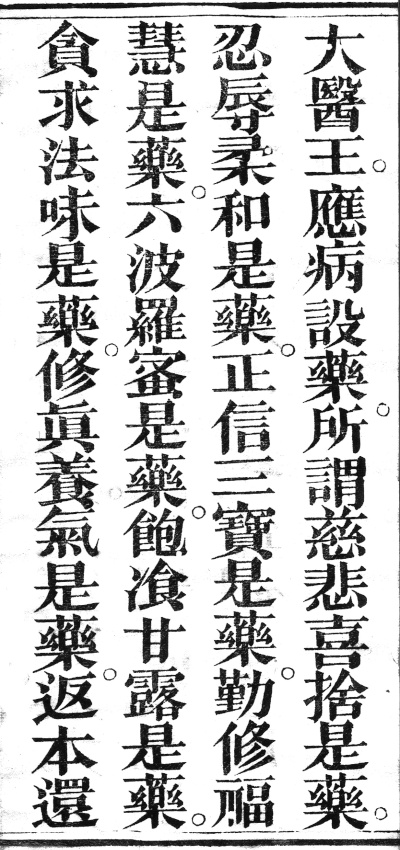 大醫王。應病設藥。所謂慈悲喜捨是藥。
忍辱柔和是藥。正信三寶是藥。勤修福
慧是藥。六波羅蜜是藥。飽飡甘露是藥。
貪求法味是藥。修眞養氣是藥。返本還